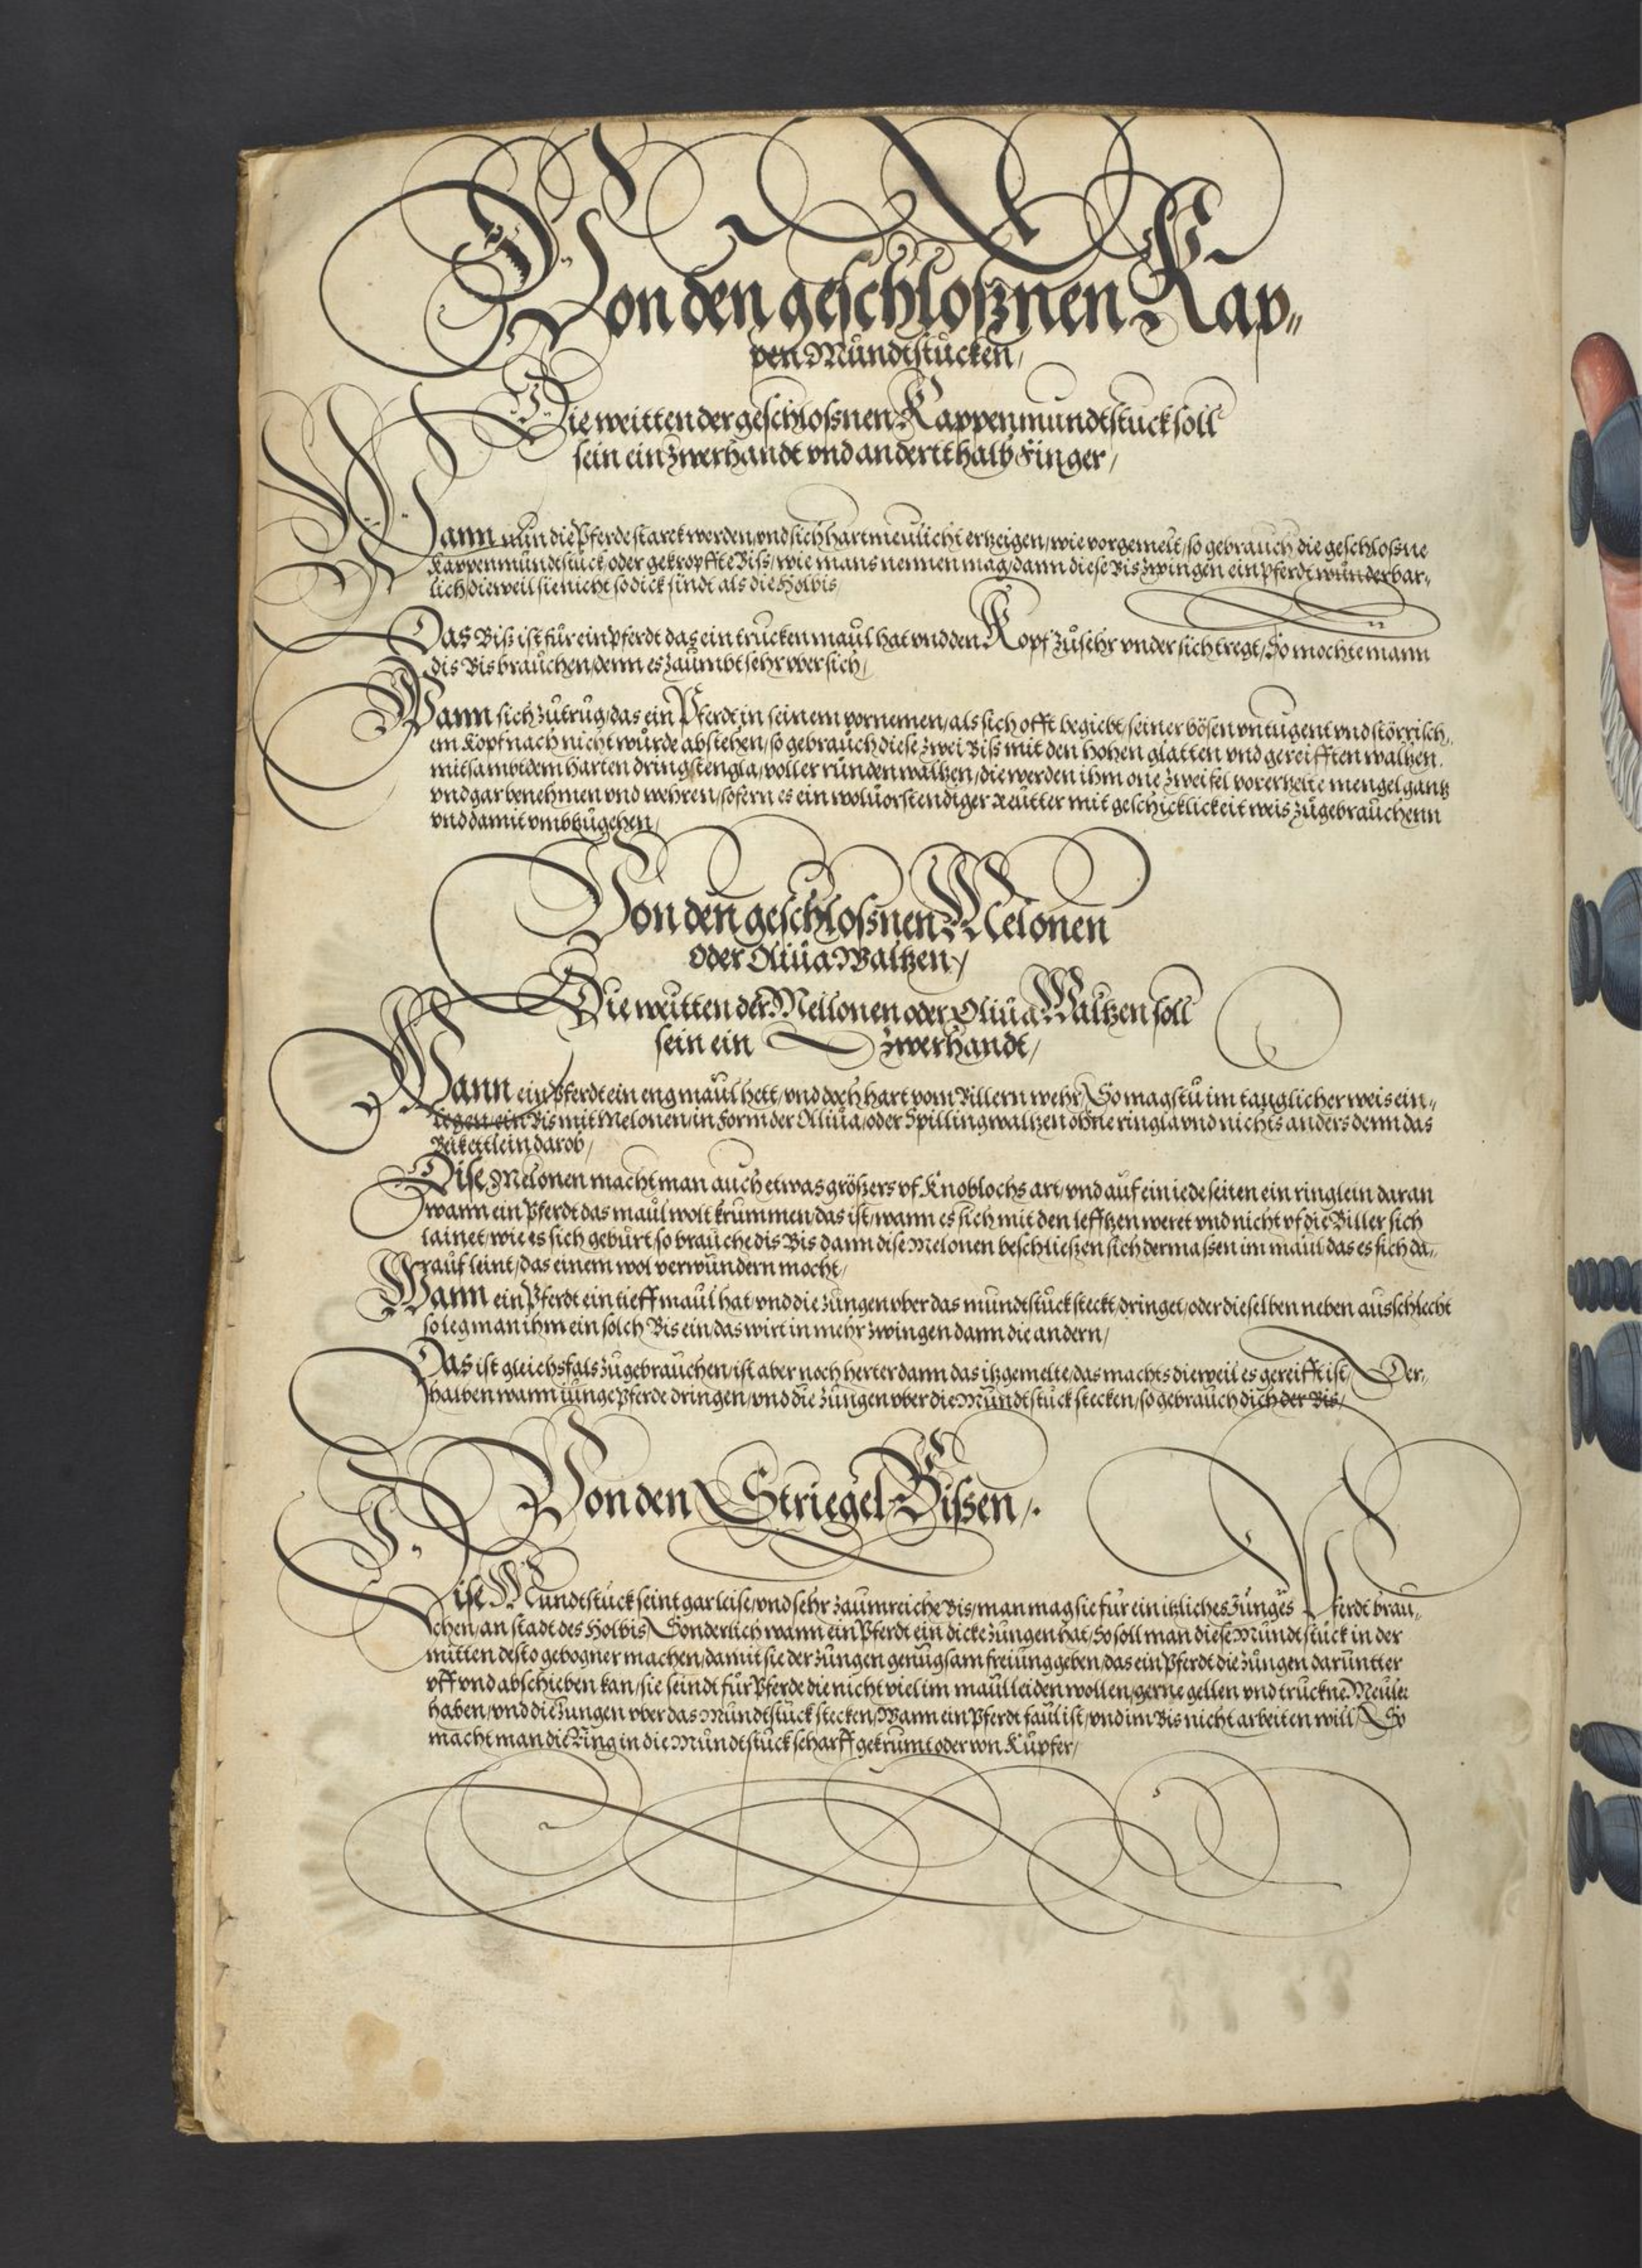 Von den geschloßnen Kap„
pen Mundtstucken/
Die weitten der geschlossnen Kappenmundtstuck soll
sein ein zwerhandt vnd andertthalb Finger/
Wann nun die Pferde starck werden/vnd sich hartmeulicht erzeigen/wie vorgemelt/so gebrauch die geschlossne
Kappenmundtstuck/oder gekropffte Biss/wie mans nennen mag/dann diese Bis zwingen ein Pferdt wunderbar„
lich/dieweil sie nicht so dick sindt als die Holbis/
Das Biss ist für ein pferdt das ein trucken maul hat vnd den Kopf zu sehr vnder sich tregt/So mochte mann
dis Bis brauchen/denn es zäumbt sehr vber sich/
Wann sich zutrug/das ein Pferdt in seinem vornemen/als sich offt begiebt/seiner bösen vntugent vnd störrisch„
em Kopf nach nicht wurde abstehen/so gebrauch diese zwei Biss mit den hohen glatten vnd gereifften waltzen.
mitsambt dem harten dringstengla/voller runden waltzen/die werden ihm one zweifel vorerzelte mengel gantz
vnd gar benehmen vnd wehren/sofern es ein woluorstendiger Reutter mit geschicklickeit weis zugebrauchenn
vnd damit vmbzugehen/
Von den geschlossnen Melonen
oder Oliua Waltzen/
Die weitten der Mellonen oder Oliua Waltzen soll
sein ein zwerhandt/
Wann ein Pferdt ein eng maul hett/vnd doch hart vom Billern wehr/So magstu im tauglicher weis ein„
legen ein Bis mit Melonen/in form der Olliua/oder Spilling waltzen ohne ringla vnd nichts anders denn das
Beikettlein darob/
Dise Melonen macht man auch etwas größers vf Knoblochs art/vnd auf ein iede seiten ein ringlein daran
wann ein Pferdt das maul wolt krummen/das ist/wann es sich mit den lefftzen weret vnd nicht vf die Biller sich
lainet/wie es sich geburt/so brauche dis Bis dann dise Melonen beschließen sich dermassen im maul das es sich da„
rauf leint/das einem wol verwundern mocht/
Wann ein Pferdt ein tieff maul hat/vnd die zungen vber das mundtstuck steckt/dringet/oder dieselben neben ausschlecht
so leg man ihm ein solch Bis ein/das wirt in mehr zwingen dann die andern/
Das ist gleichsfals zugebrauchen/ist aber noch herter dann das itzgemelte/das machts dieweil es gereifft ist/Der„
halben wann iunge Pferde dringen/vnd die zungen vber die Mundtstuck stecken/so gebrauch dich der Bis/
Von den Striegel Bissen/.
Dise Mundtstuck seint gar leise/vnd sehr zaumreiche Bis/man mag sie für ein itzliches Junges Pferdt brau„
chen/an stadt des Holbis/Sonderlich wann ein Pferdt ein dicke zungen hat/So soll man diese Mundtstuck in der
mitten desto gebogner machen/damit sie der zungen genugsam freiung geben/das ein Pferdt die zungen daruntter
vff vnd abschieben kan/sie seindt für Pferde die nicht viel im maul leiden wollen/gerne gellen vnd truckne Meuler
haben/vnd die Zungen vber das Mundtstuck stecken/Wann ein Pferdt faul ist/vnd im Bis nicht arbeiten will/So
macht man die Ring in die Mundtstuck scharff gekrumt oder von Kupfer/